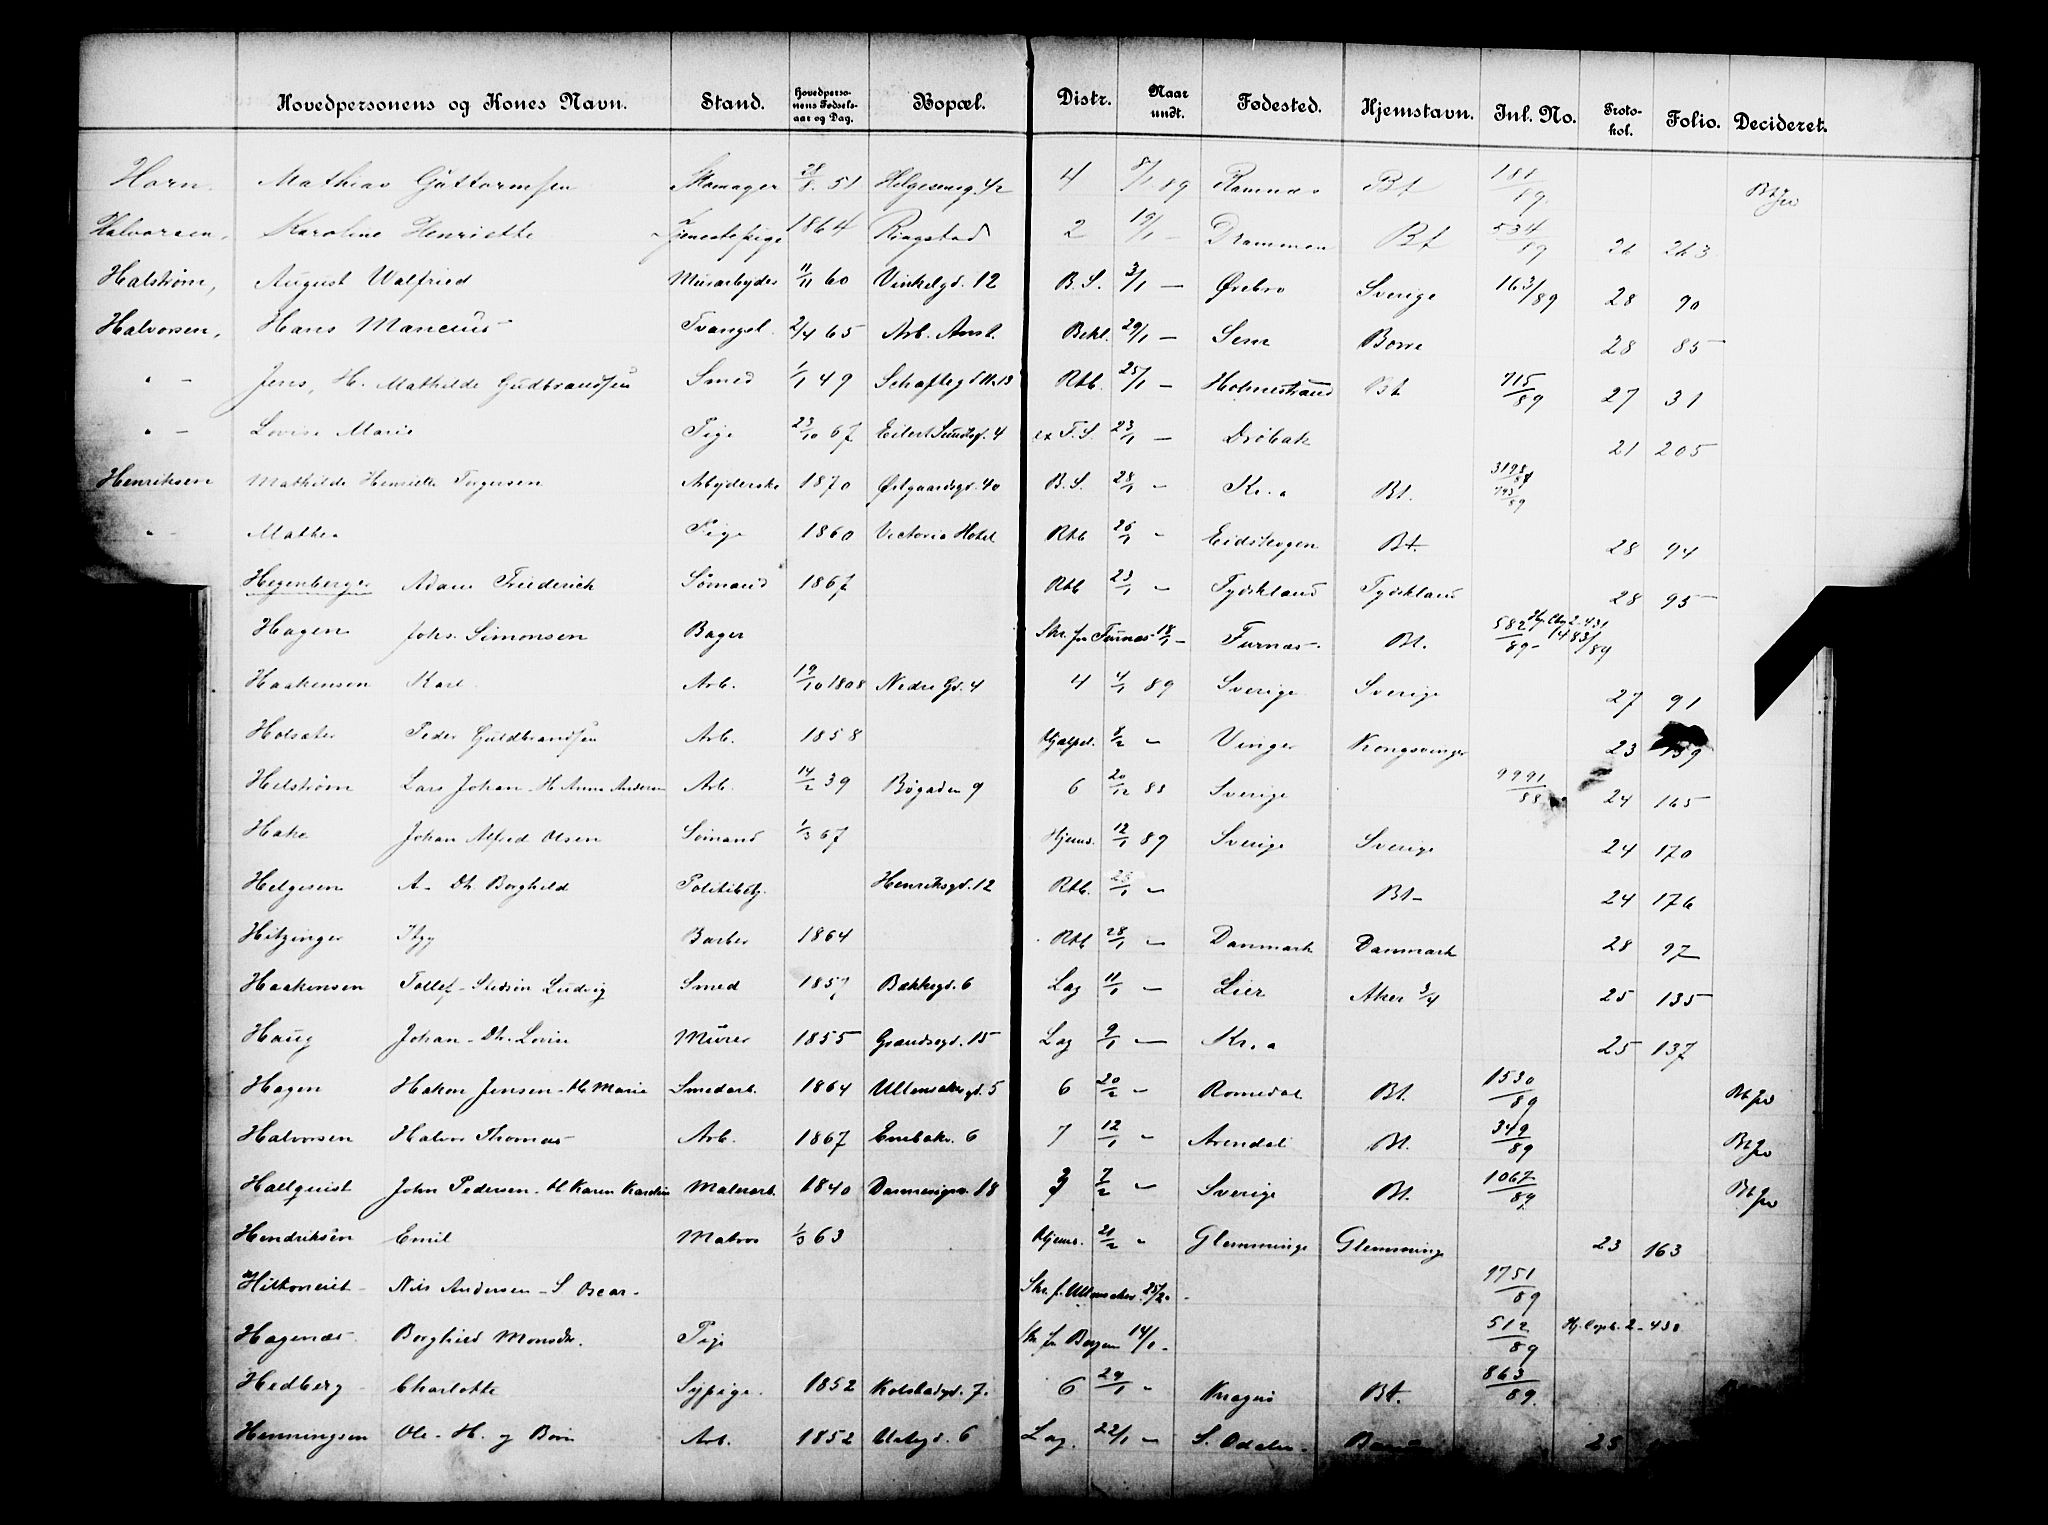 Hovedpersonens og Kones Navn. Stand. Hovedpersonens Fødselsaar og Dag. Bopæl. Distr. Naar undt. Fødested. Hjemstavn. Inl. No. Protokol. Folio. Decideret.
Horn Mathias Guttormsen Skomager 28/8 51 Helgesensg. 42 4 8/1 89 Ramnæs Bt 188/89 Bt
Halvorsen, Karoline Henriette Tjenestepige 1864 Ringstad 2 19/1 – Drammen Bt 534/89 26 263
Halstrøm, August Walfried Murarbejder 11/11 60 Vinkelgd. 12 B.S. 3/1 – Ørebro Sverige 163/89 28 90
Halvorsen, Hans Mancius Tvangsl. 2/4 65 Arb. Anst. Bekl. 29/1 – Sem Borre 28 85
" – Jens, H. Mathilde Gudbrandsen Smed 1/1 49 Rtb. 25/1 – Holmestrand Bt 715/89 27 31
" – Lovise Marie Pige 23/10 67 Eilert Sundtsg. 4 F.S. 23/1 – Drøbak 21 205
Henriksen Mathilde Henriette Torgersen Arbejderske 1870 Østgaardsgd. 40 B.S. 28/1 " Kr.a Bt. 743/89
" – Mathea Pige 1860 Victoria Hotel Rtb 26/1 " Eidskogen Bt. 28 94
Hegenberger Adam Friederich Sømand 1867 Rtb 23/1 " Tydskland Tydskland 28 95
Hagen Johs. Simonsen Bager Skr. fra Furnæs 18/1 – Furnæs Bt. 582/89 1483/89
Haakensen Karl Arb. 19/10 1808 Nedre Gd. 4 4 4/1 89 Sverige Sverige 27 91
Holsæter Peder Guldbrandsen Arb. 1858 Hjælpel. 8/2 " Vinger Kongsvinger 23 159
Helstrøm Lars Johan – H. Anna Andersen Arb. 14/2 39 Bøgaden 9 6 20/12 88 Sverige 9991/88 24 165
Hake Johan Alfred Olsen Sømand 1/3 67 Hjems. 12/1 89 Sverige Sverige 24 170
Helgesen A– Dh. Borghild Politibetj. Henriksgd. 12 Rtb. 25/1 " Bt– 24 176
Hitzinger Barber 1864 Rtb 28/1 " Danmark Danmark 28 97
Haakensen Tollef – Ludvig Smed 1857 Bakkegd. 6 Lag 11/1 – Lier Aker 3/4 25 135
Haug Johan – Dh. Lovise Murer 1855 Grændsegd. 15 Lag 9/1 – Kr.a 25 137
Hagen Hakon Jensen – H. Marie Smedarb. 1864 Ullensakergt. 5 6 20/2 " Romedal Bt. 1530/89 Bt
Halvorsen Halvor Thomas Arb. 1867 Enebakv. 6 7 12/1 " Arendal Bt. 349/89 Bt
Hallquist John Pedersen – H. Karen Karoline Malerarb. 1840 18 7 7/2 " Sverige Bt. 1067/89 Bt
Hendriksen Emil Matros 1/3 63 Hjems. 21/2 " Glemminge Glemminge 23 163
Nils Andersen – S. Oscar – Skr. f. Ullensaker 25/2 – 9751/89
Hagenæs Borghild Monsdtr. Pige Skr. fra Bergen 14/1 – 512/89 Hj. Copb. 2 – 430
Hedberg Charlotte Sypige 1852 Kolstadgd. 7 6 29/1 " Kragerø Bt. 863/89
Henningsen Ole – H. og Børn Arb. 1852 Urtegd. 6 Lag. 22/1 – S. Odalen 25